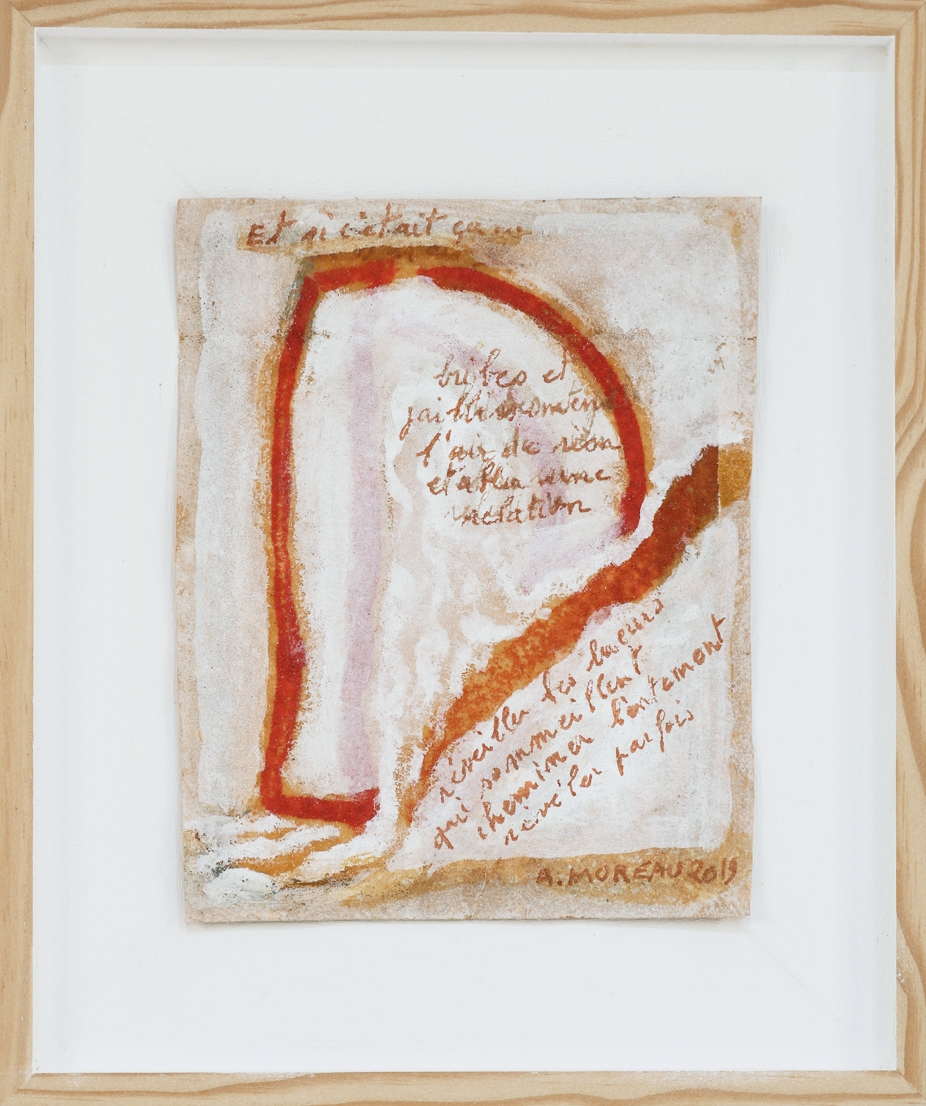 Et si c'était ça...
bribes et
jaillissement
l'air de rien
établir une
relation
réveiller les lueurs
qui sommeillent
cheminer lentement
révéler parfois
A. MOREAU 2019